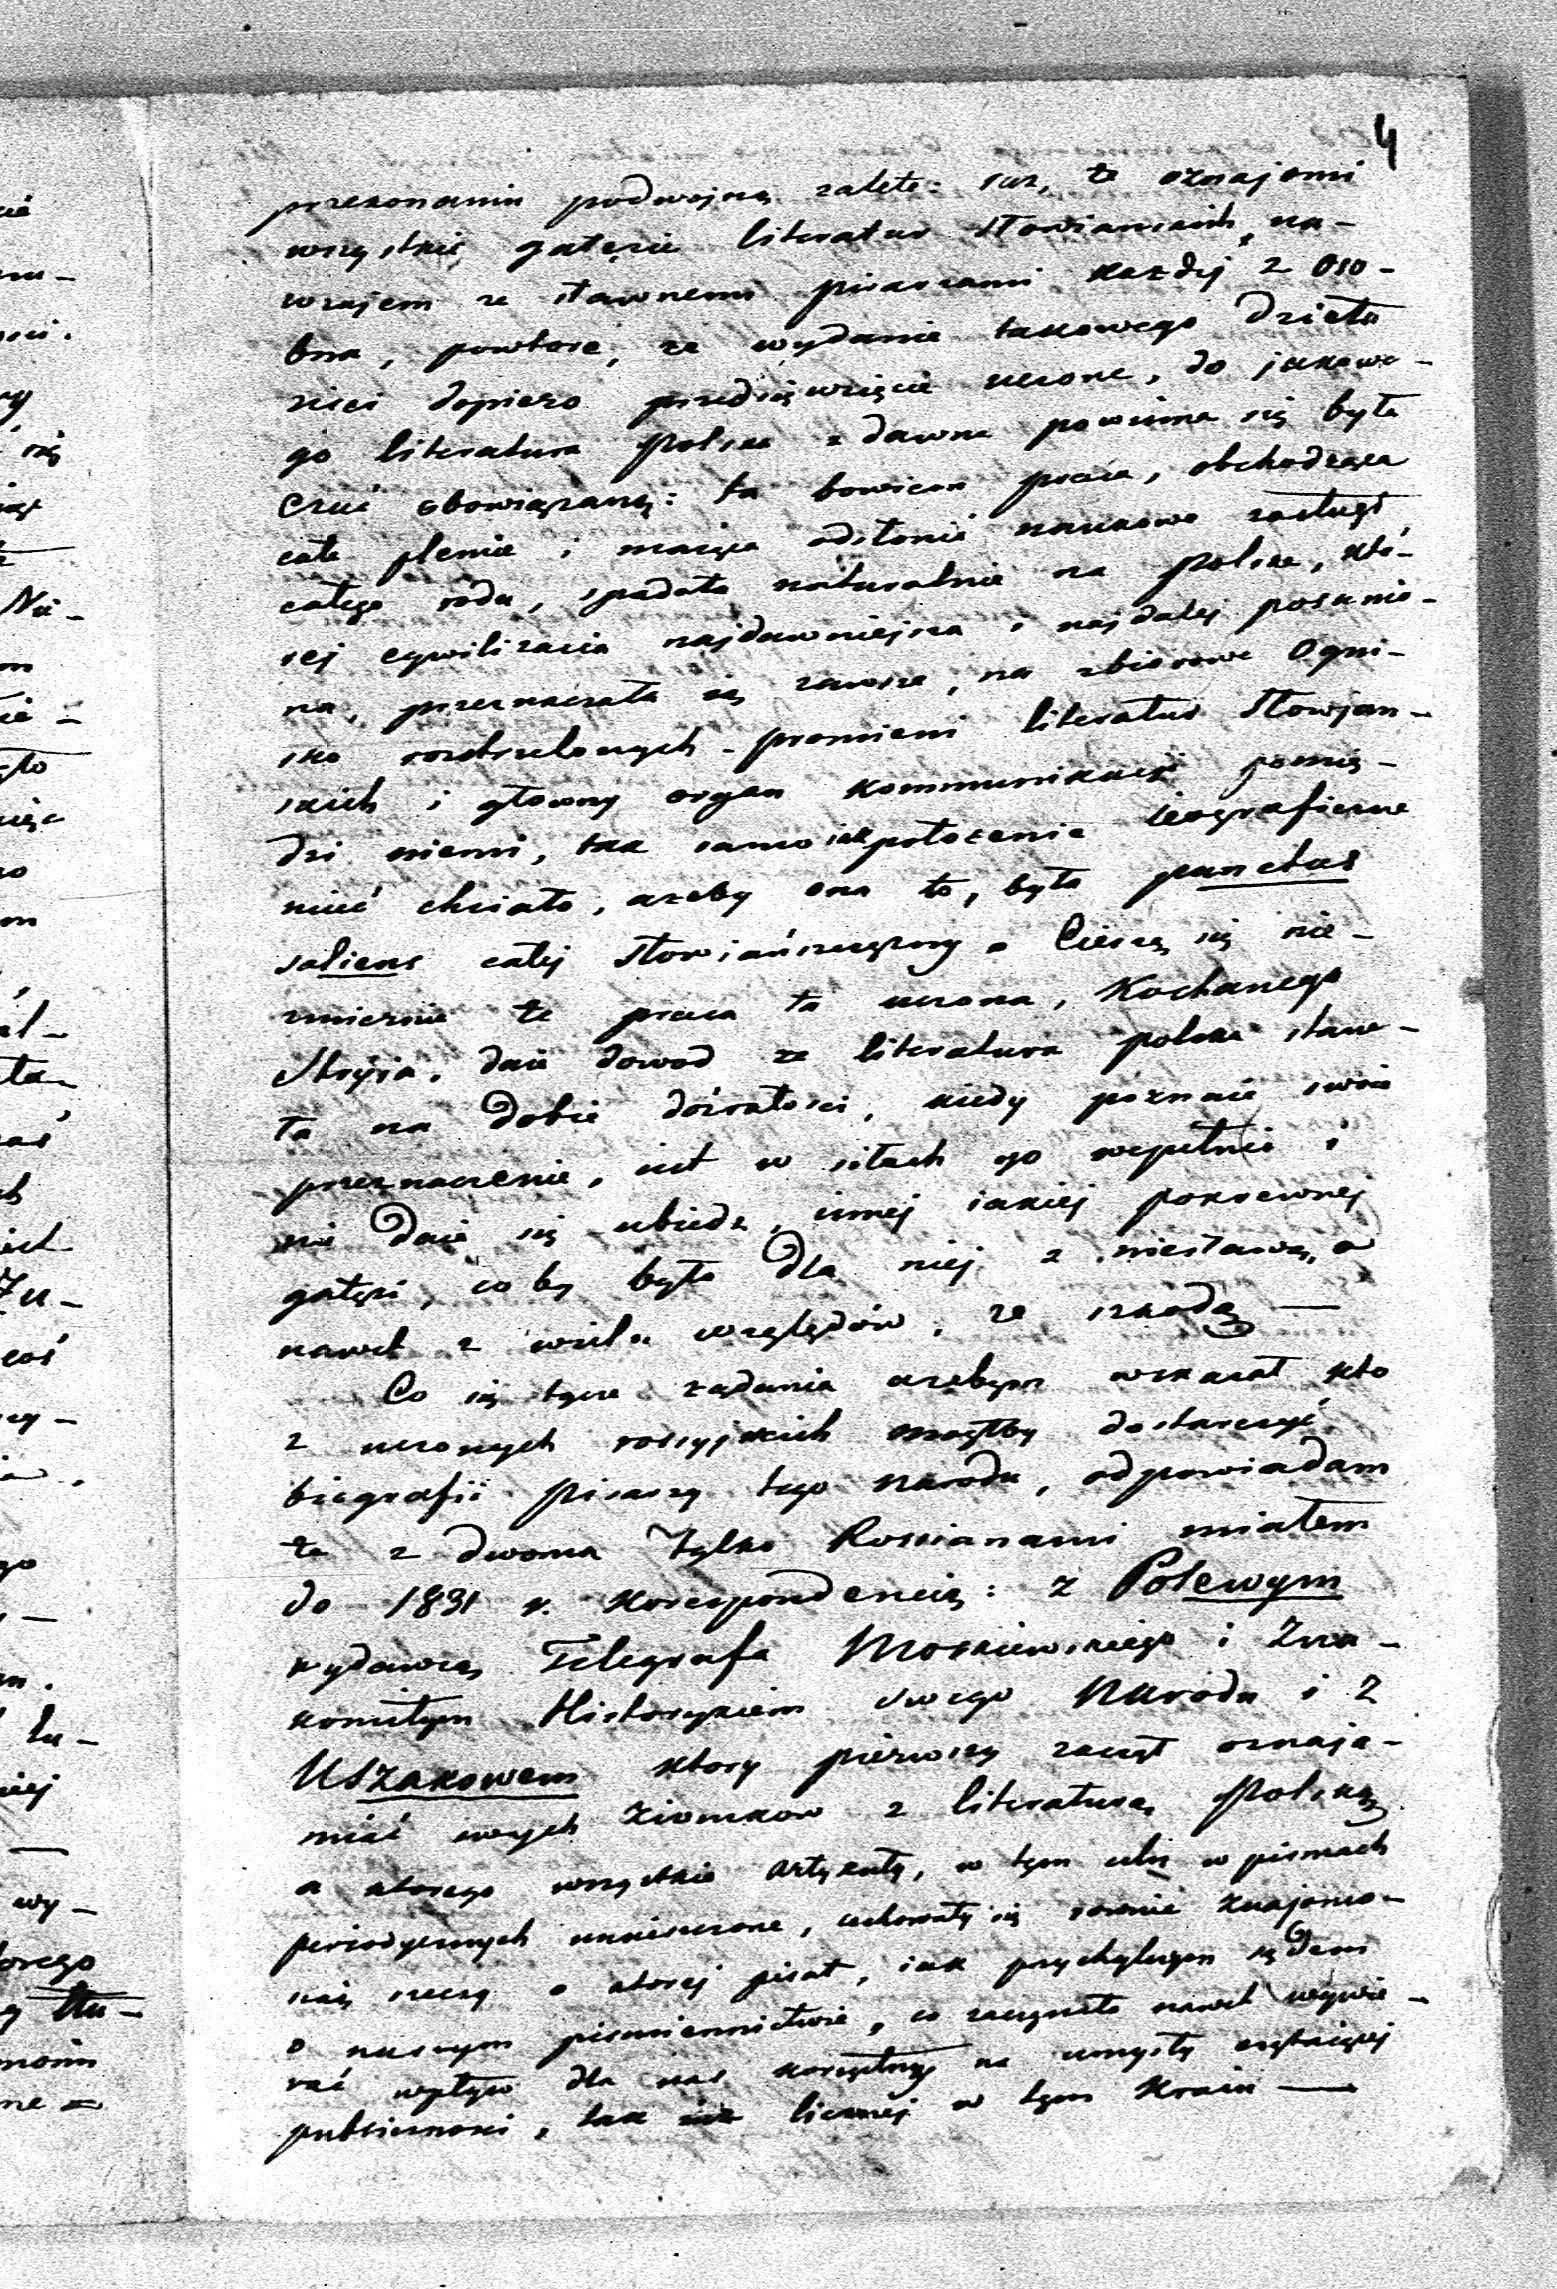 4
przekonaniu podwójną zaletę: raz, że oznajomi
wszystkie gałęzie literatur słowiańskich, na-
wzajem ze sławnemi pisarzami każdej z oso-
bna, powtore, że wydanie takowego dzieła
iści dopiero przedsięwzięcie uczone, do jakowe-
go literatura Polska z dawna powinna się była
czuć obowiązaną: ta bowiem praca, obchodząca
całe plemie i mająca odsłonić naukowe zasługi
całego rodu, spadała naturalnie na Polskę, któ-
rej cywilizacia najdawniejsza i najdalej posunio-
na, przeznaczała ią zawsze, na zbiorowe Ogni-
sko rozstrzelonych promieni literatur Słowjan-
skich i głowny organ kommunikacji pomię-
dzi niemi, tak samo iak położenie jeograficzne
mieć chciało, ażeby ona to, była punctus
saliens całej Słowiańszczyzny. Cieszę się nie-
zmiernie że praca ta uczona, Kochanego
Stryja, daie dowod że literatura polska stane-
ła na Dobie dójrzałości, kiedy poznaie swoie
przeznaczenie, iest w siłach go wypełnić i
nie Daie się ubiedz, innej iakiej pokrewnej
gałęzi, co by było Dla niej z niesławą, a
nawet z wielu względów, ze szkodą —
Co się tycze żądania ażebym wskazał kto
z uczonych rossyjskich mogłby dostarczyć
biografii pisarzy tego narodu, odpowiadam
że z dwoma Tylko Rossianami miałem
do 1831 r. korespondencią: z Polewym
wydawcą Telegrafa Moskiewskiego i Zna-
komitym Historykiem swego Narodu i z
Uszakowem ktory pierwszy zaczął oznaja-
miać swych Ziomkow z literaturą Polską
a ktorego wszystkie artykuły, w tym celu w pismach
periodycznych umieszczone, cechowały się rownie znajomo-
scią rzeczy o ktorej pisał, iak przychylnym sąDem
o naszym pismiennictwie, co zaczynało nawet wywie-
rać wpływ dla nas korzystny na umysły czytaiącej
publiczności, tak iuż licznej w tym Kraiu —